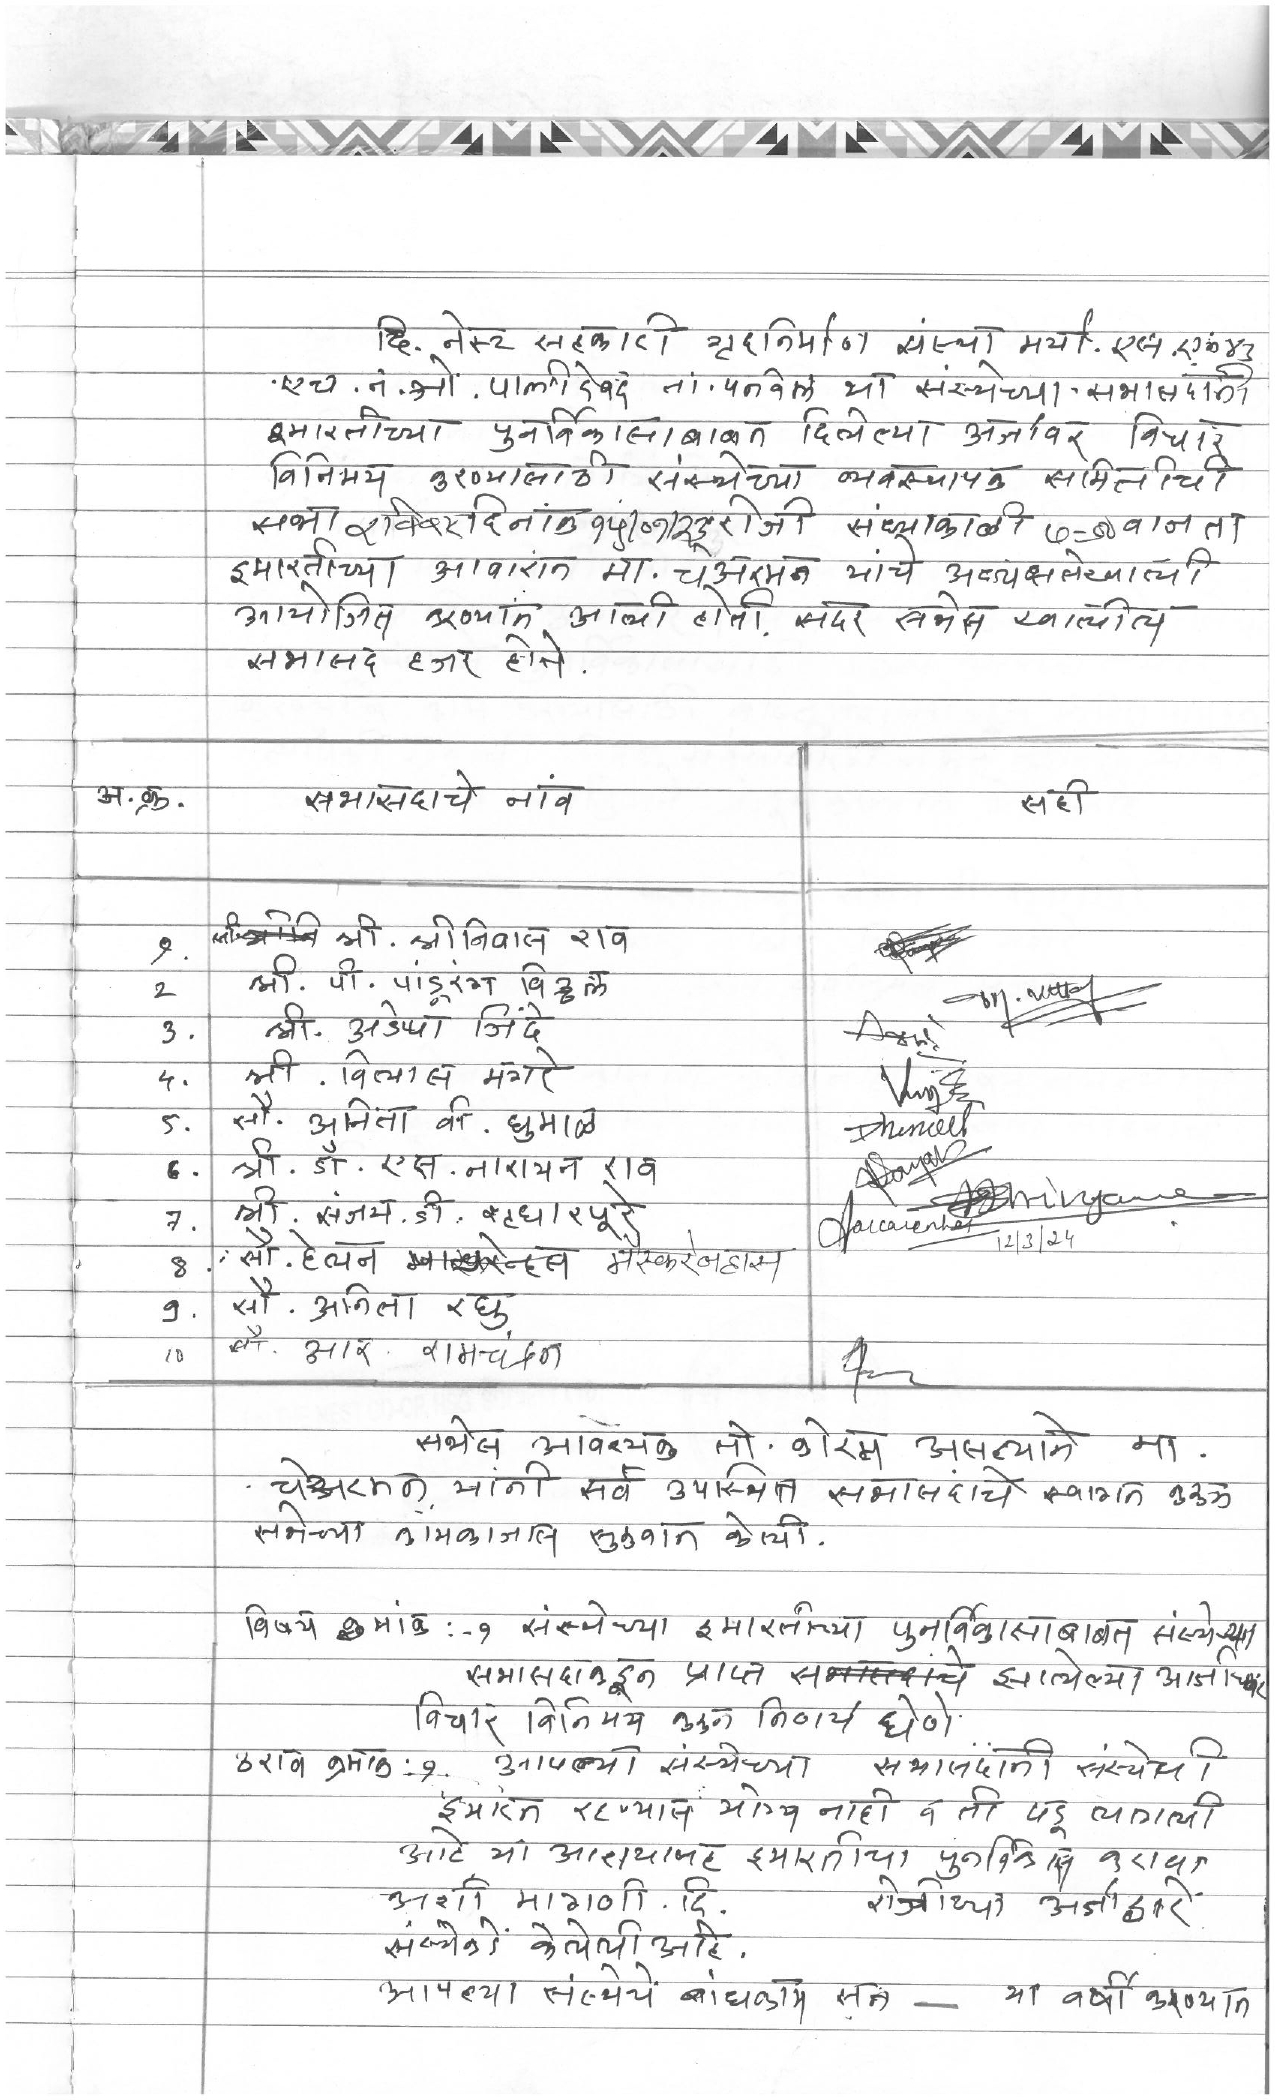 दि. नेस्ट सहकारी गृहनिर्माण संस्था मर्या. एस.
एच. नं. ओ. पाली देवद ता. पनवेल या संस्थेच्या सभासदांनी
इमारतीच्या पुनर्विकासाबाबत दिलेल्या अर्जावर विचार
विनिमय करण्यासाठी संस्थेच्या व्यवस्थापक समितीची
सभा रविवार दिनांक रोजी संध्याकाळी वाजता
इमारतीच्या आवारात मा. चेअरमन यांचे अध्यक्षतेखाली
आयोजित करण्यात आली होती. सदर सभेस खालील
सभासद हजर होते.
अ.क्र. सभासदाचे नांव सही
१. श्री. श्रीनिवास राव
2 श्री. पी. पांडूरंग विठ्ठल
3. श्री. अडेप्पा शिंदे
4. श्री. विलास मगरे
5. सौ. अनिता व्ही. धुमाळ
6. श्री. डॉ. एस. नारायन राव
7. श्री. संजय. डी.
12/3/24
8. सौ. हेलन मॅस्करेनहास
9. सौ. अनिता रघु
10 आर. रामचंद्रन
सभेस आवश्यक तो. कोरम असल्याने मा.
चेअरमन यांनी सर्व उपस्थित सभासदांचे स्वागत करून
सभेच्या कामकाजास सुरुवात केली.
विषय क्रमांक :-१ संस्थेच्या इमारतीच्या पुनर्विकासाबाबत संस्थेच्या
सभासदाकडून प्राप्त सभासदांचे झालेल्या अर्जावर
विचार विनिमय करून निर्णय घेणे.
ठराव क्रमांक :१. आपल्या संस्थेच्या सभासदांनी संस्थेची
इमारत रहाण्यास योग्य नाही व ती पडू लागली
आहे या आशयासह इमारतीचा पुनर्विकास करावा
अशी मागणी दि. रोजीच्या अर्जाद्वारे
संस्थेकडे केलेली आहे.
आपल्या संस्थेचे बांधकाम सन — या वर्षी करण्यात